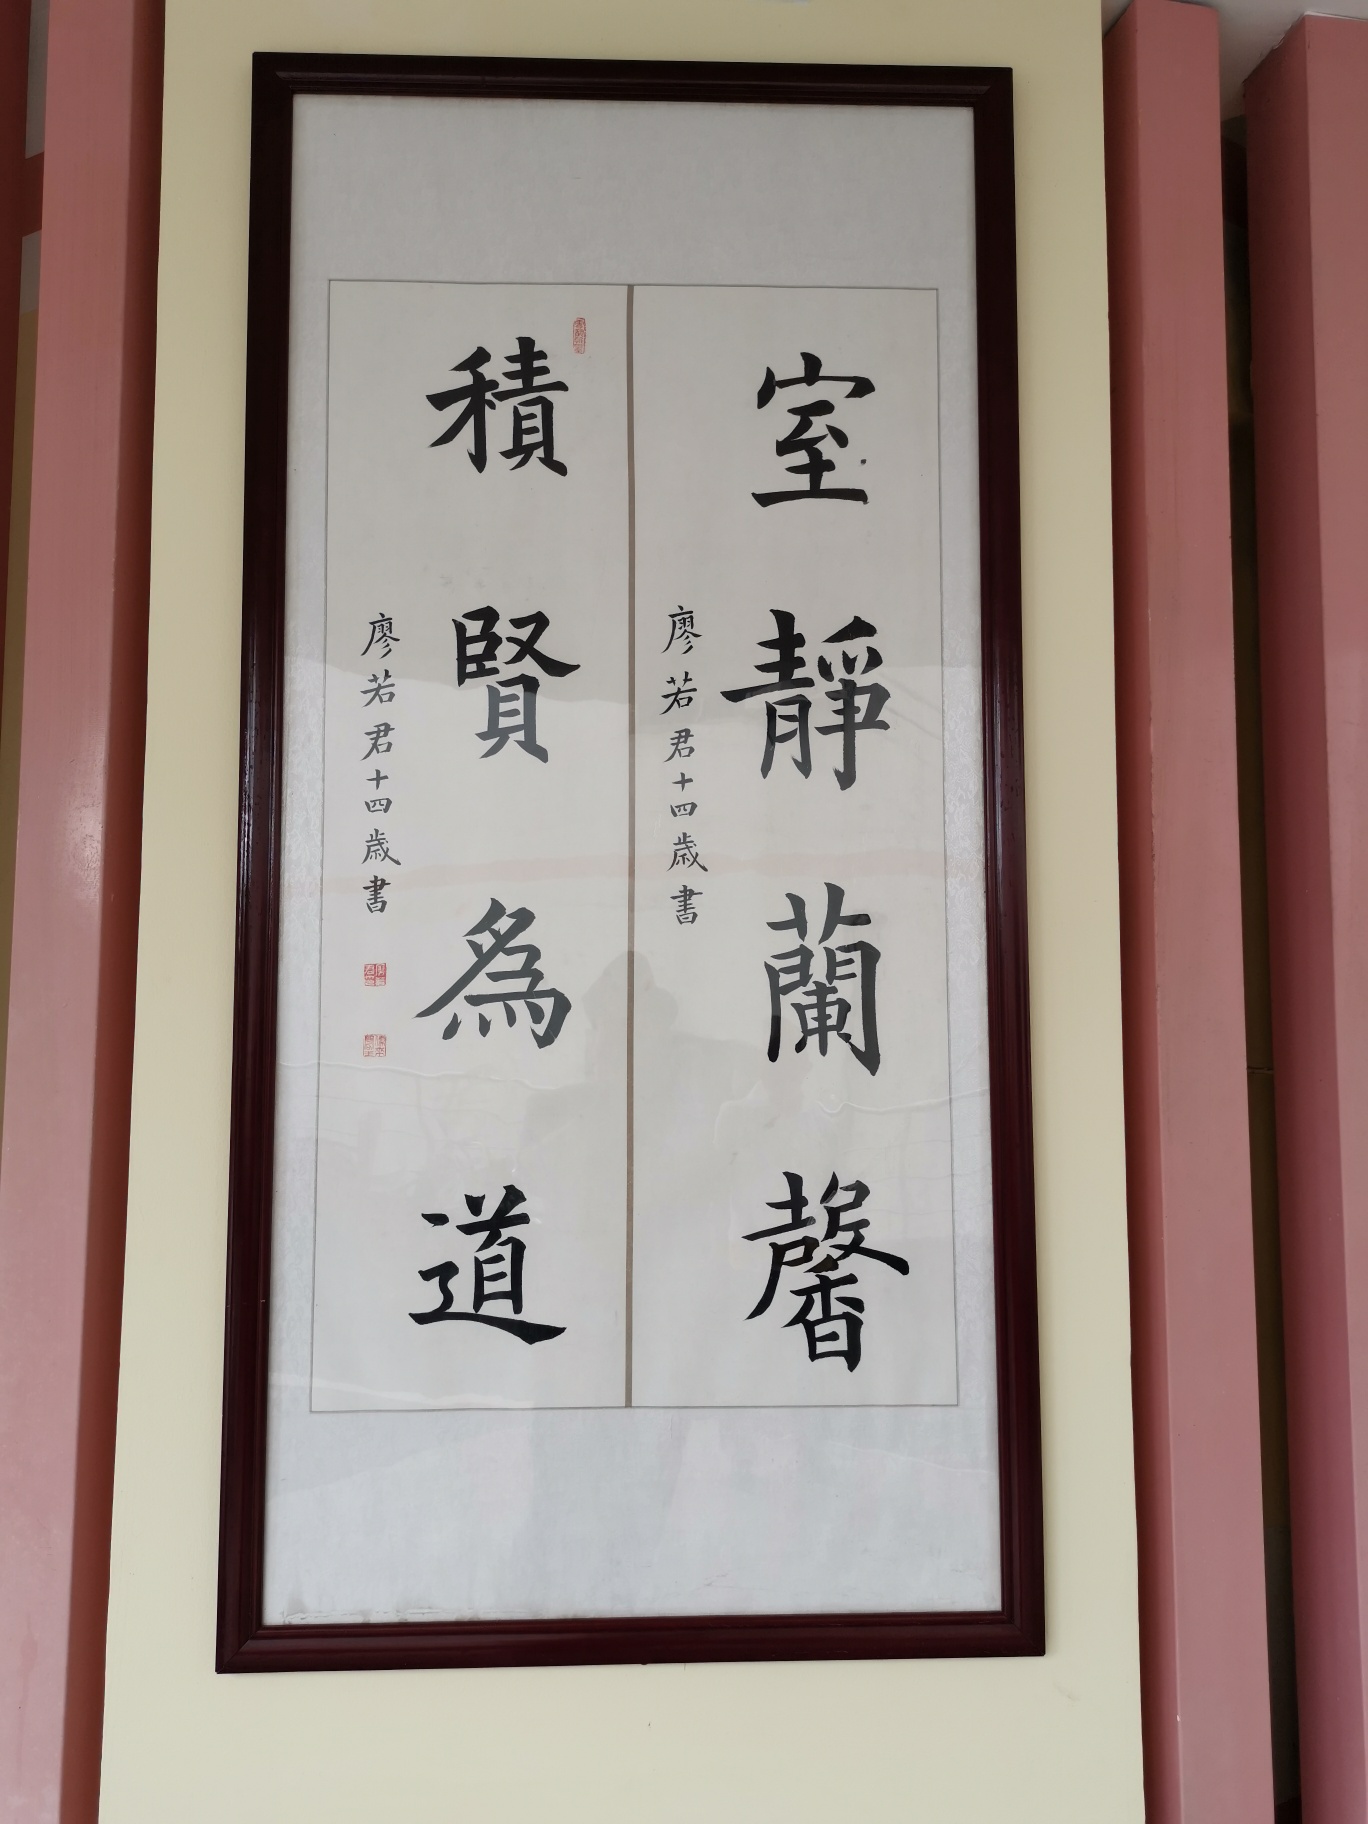 室靜蘭馨
廖若君十四歲書
積賢為道
廖若君十四歲書